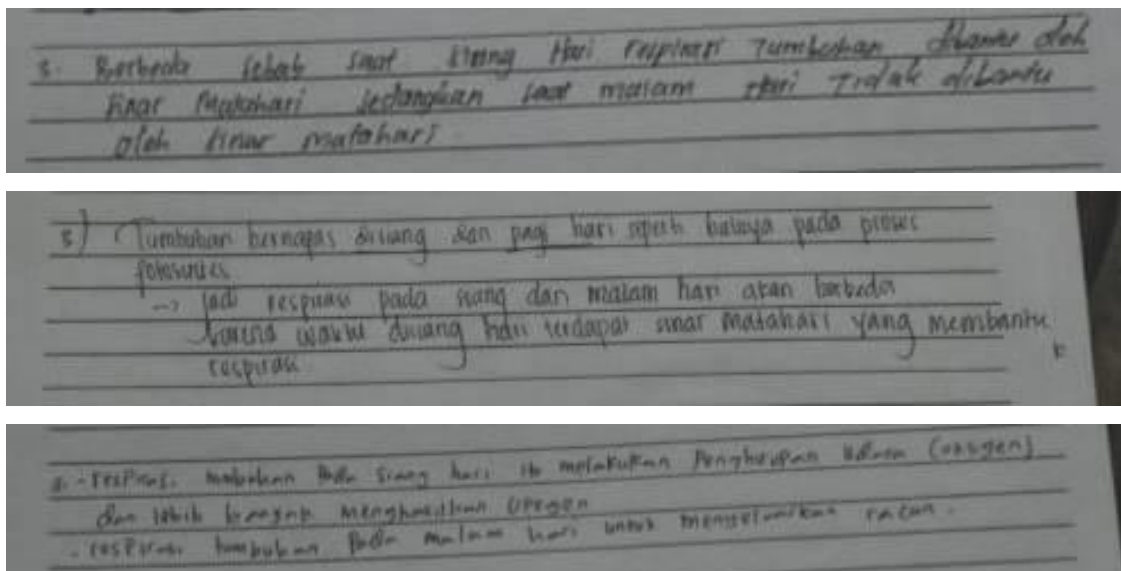 3. Berbeda sebab saat siang Hari respirasi Tumbuhan dibantu oleh
sinar Matahari sedangkan saat malam Hari Tidak dibantu
oleh sinar matahari.
3) Tumbuhan bernapas disiang dan pagi hari seperti halnya pada proses
fotosintesis
-> jadi respirasi pada siang dan malam hari akan berbeda
karena waktu disiang hari terdapat sinar matahari yang membantu
respirasi
3. - respirasi tumbuhan pada siang hari itu melakukan Penghirupan udara (oksigen)
dan lebih banyak menghasilkan oksigen
- respirasi tumbuhan pada malam hari untuk mengeluarkan racun.